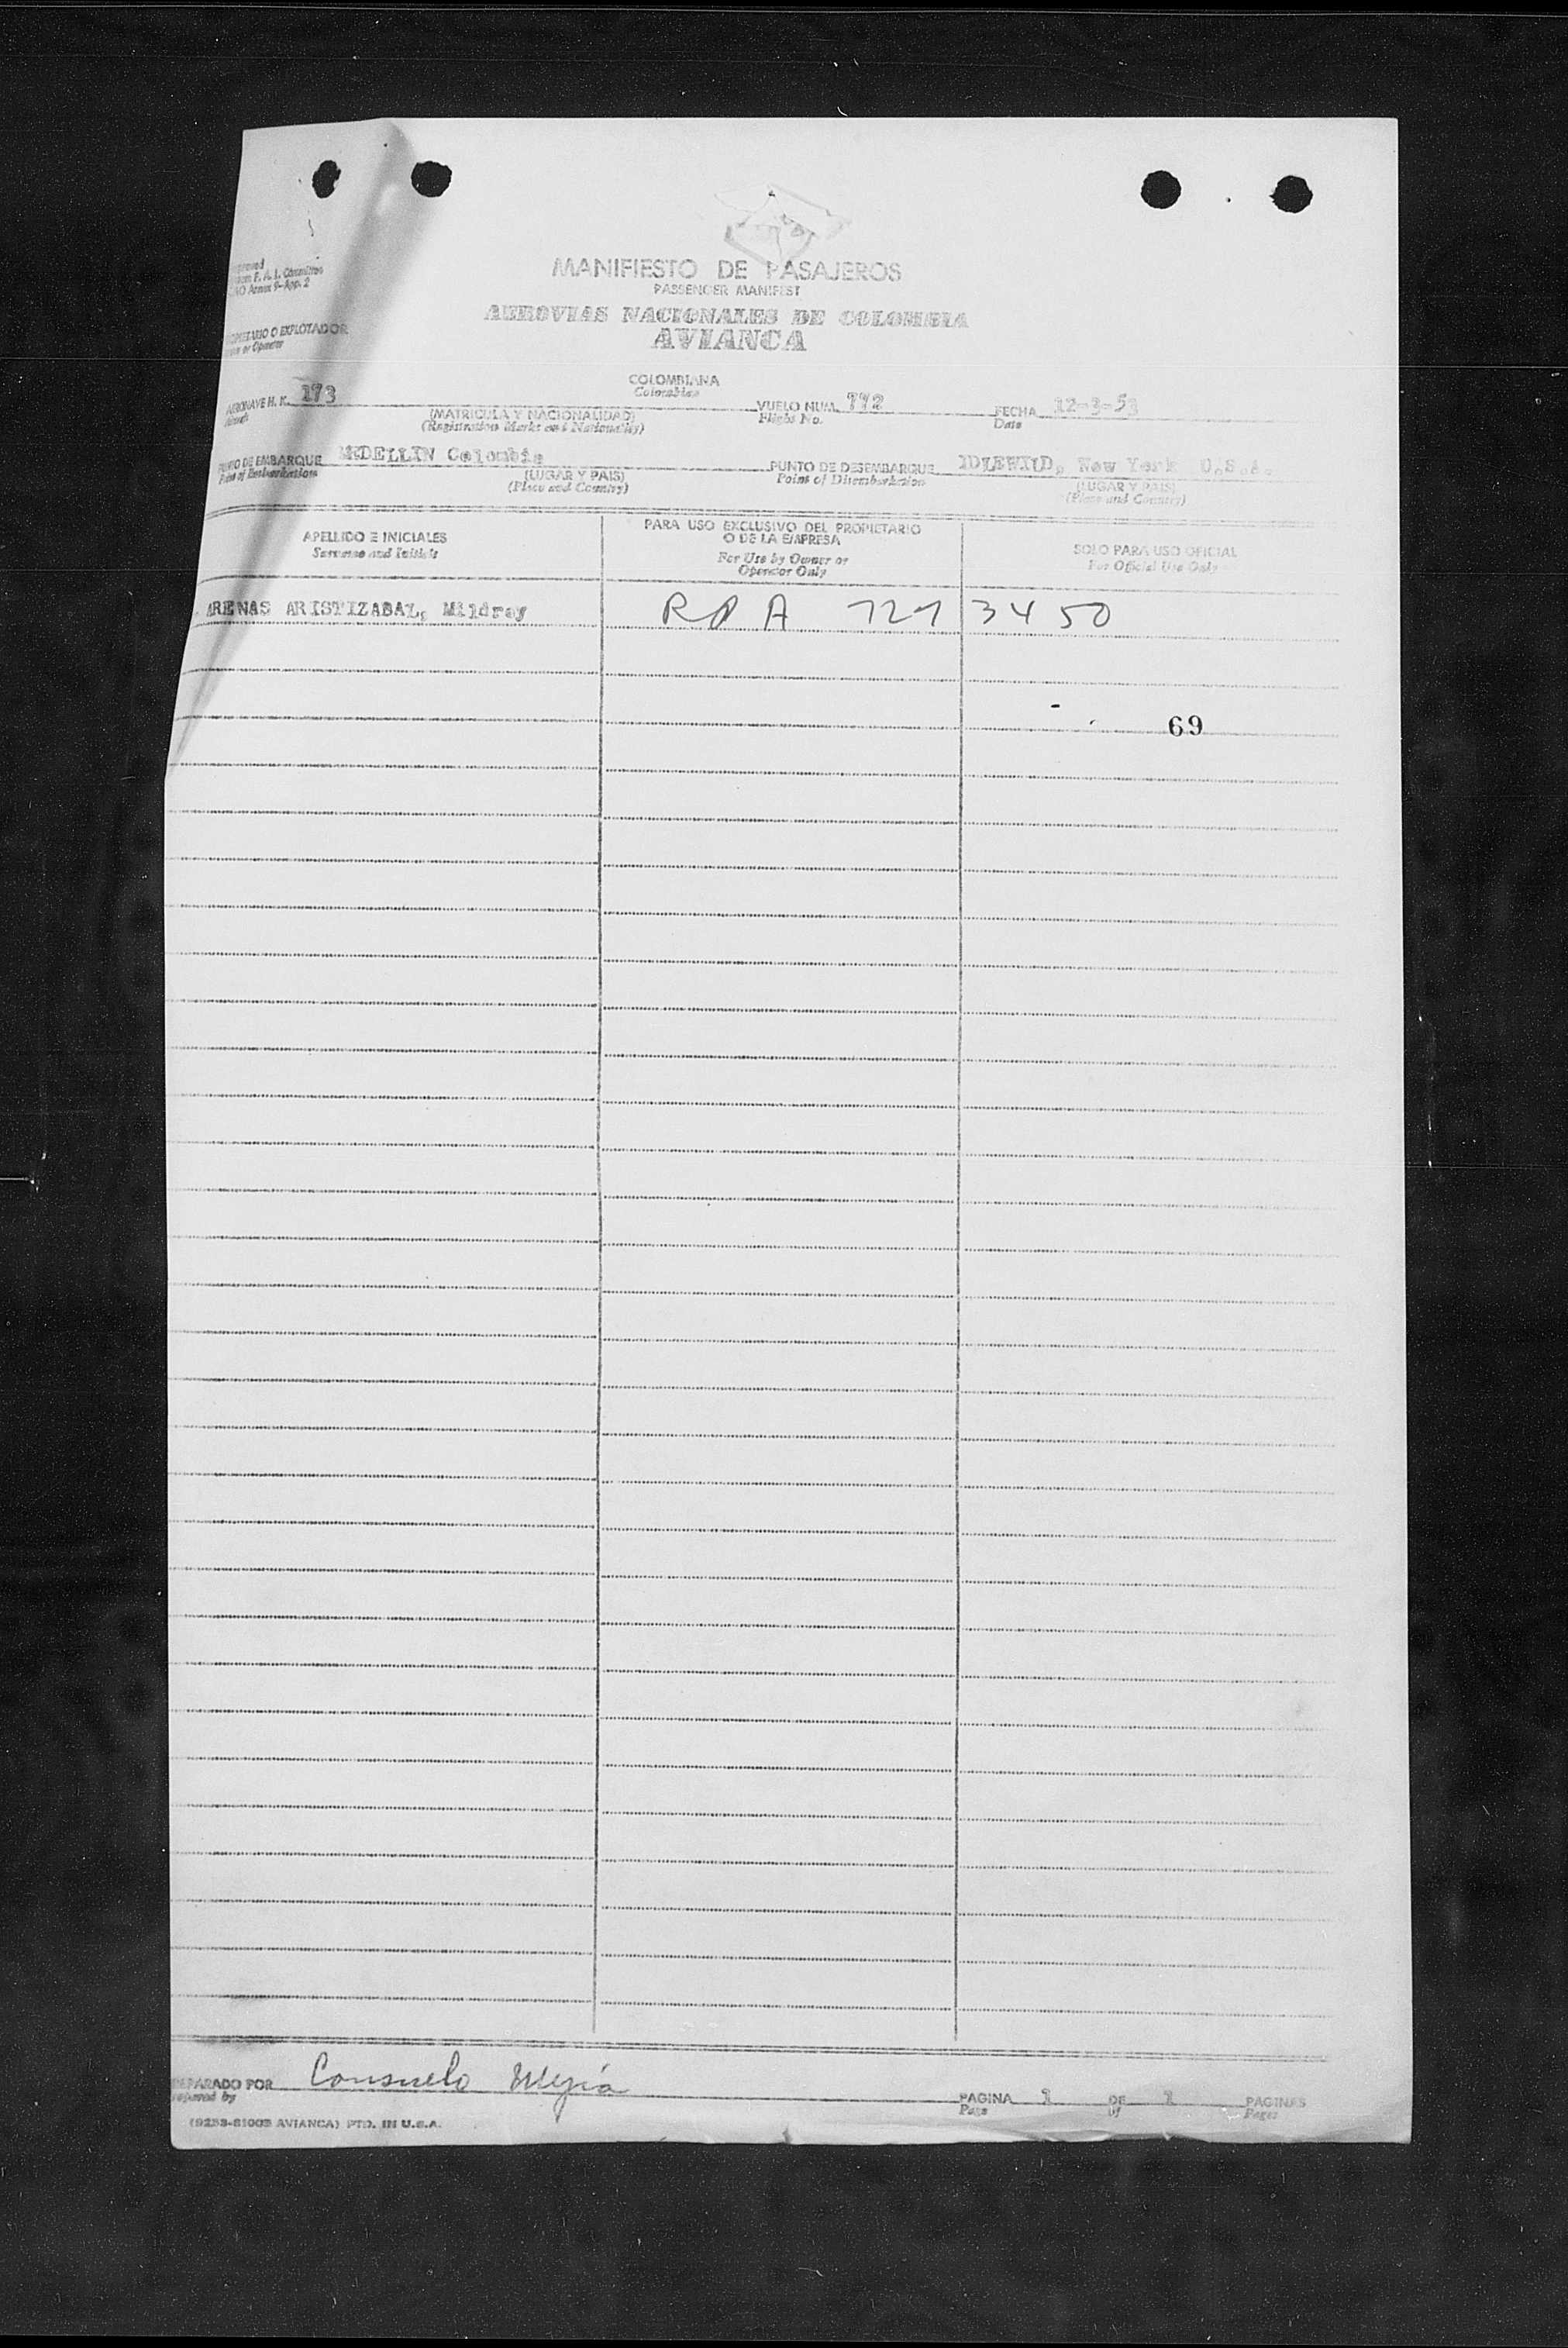 MANIFIESTO DE PASAJEROS
PASSENGER MANIFEST
F. A. I. Committee
Annex 9-App. 2
AEROVIAS NACIONALES DE COLOMBIA
AVIANCA
O EXPLOTADOR
or Operator
COLOMBIANA
Colombian
AERONAVE H. K. 173 VUELO NUM. 772 FECHA 12-3-53
Aircraft (MATRICULA Y NACIONALIDAD) Flight No. Date
(Registration Marks and Nationality)
PUNTO DE EMBARQUE MEDELLIN Colombia PUNTO DE DESEMBARQUE IDLEWILD, New York U.S.A.
Point of Embarkation (LUGAR Y PAIS) Point of Disembarkation (LUGAR Y PAIS)
(Place and Country) (Place and Country)
APELLIDO E INICIALES PARA USO EXCLUSIVO DEL PROPIETARIO O DE LA EMPRESA SOLO PARA USO OFICIAL
Surname and Initials For Use by Owner or Operator Only For Official Use Only
ARENAS ARISTIZABAL, Mildrey 3450
69
PARADO POR Consuelo Mejía PAGINA 1 DE 1 PAGINAS
by Page of Pages
AVIANCA) PTD. IN U.S.A.